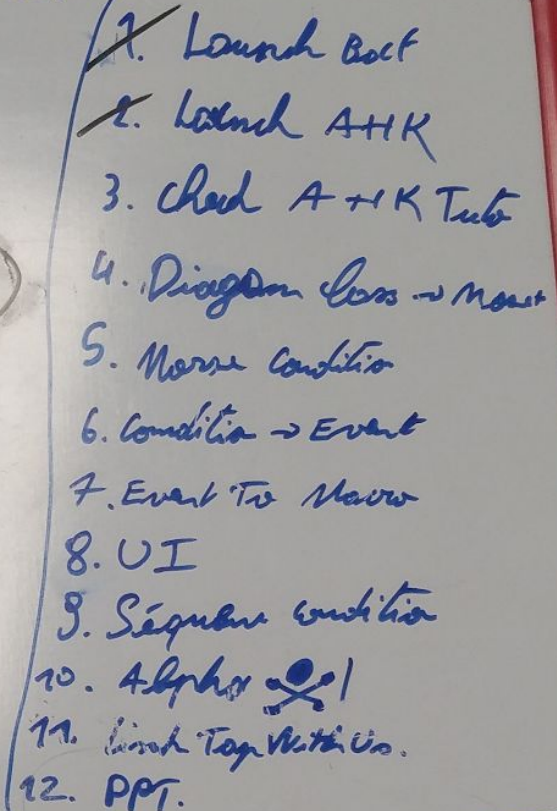 1. Launch
2. Launch AHK
3. Check AHK Tuto
4. Diagram Class →
5. Morse Condition
6. Condition → Event
7. Event To Macro
8. UI
9. Séquence condition
10. Alpha
11. TapWithUs.
12. PPT.